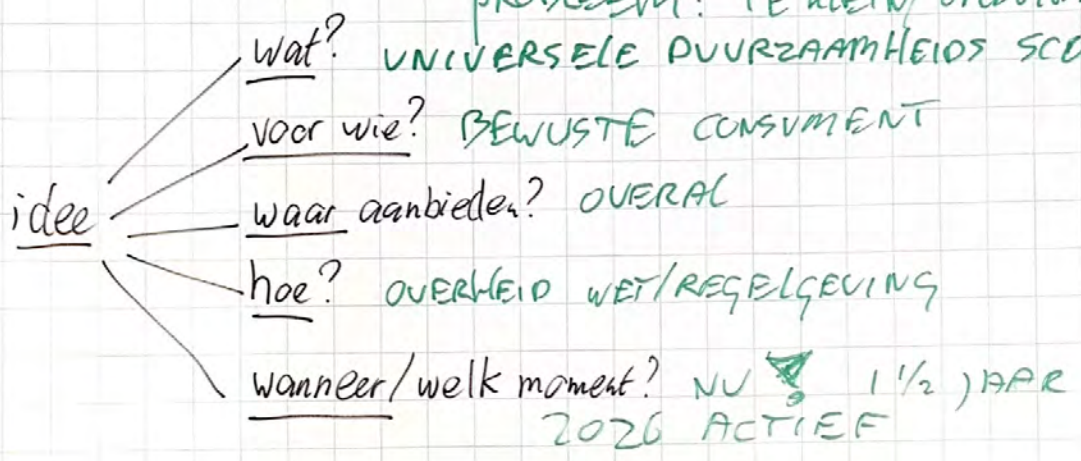 PROBLEEM! TE KLEIN
wat? UNIVERSELE DUURZAAMHEIDS SCO
voor wie? BEWUSTE CONSUMENT
waar aanbieden? OVERAL
idee
hoe? OVERHEID WET/REGELGEVING
wanneer/welk moment? NU! 1 1/2 JAAR
2026 ACTIEF